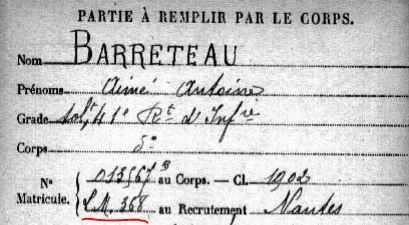 PARTIE À REMPLIR PAR LE CORPS.
Nom BARRETEAU
Prénoms Aimé Antoine
Grade Sol.t 41e Rt d'Infie
Corps
No Matricule. 013567 au Corps. — Cl. 1902
L.M. 368 au Recrutement Nantes